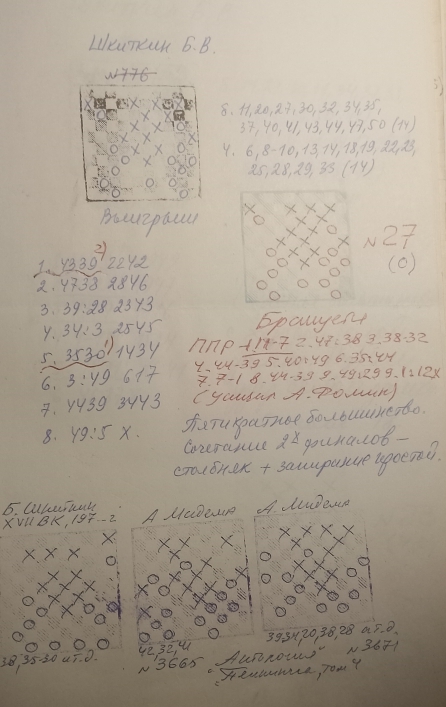 Шкиткин Б.В.
№776
Выигрыш
Б. 11,20,27,30,32,34,35,
37,40,41,43,44,47,50 (14)
Ч. 6,8-10,13,14,18,19,22,23,
25,28,29,35 (14)
№27
(0)
1. 4339 2) 2242
2. 4738 2846
3. 39:28 2343
4. 34:3 2545
5. 3530 1) 1434
6. 3:49 617
7. 4439 3443
8. 49:5 X.
ППР 11-7 2.47:38 3.38-32
4.44-39 5.40:49 6.35:44
7.7-1 8.44-39 9.49:29 9.1:12X
(усилил А.Фомин)
Пятикратное большинство.
Сочетание 2х финалов –
столбняк + запирание простой.
Б. Шкиткин
XVII ВК, 197 -г
А Мадема
А. Мадема
38,35-30 и т.д.
42,32,41
№3665
39,34,20,38,28 и т.д.
№3671
"Антология
Пеннинга, том 4